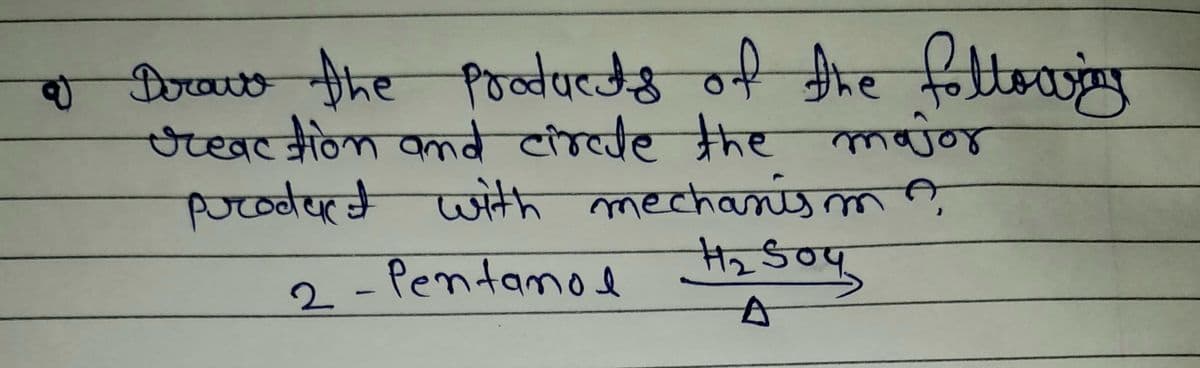 a) Draw the products of the following
reaction and circle the major
product with mechanism ?
2-Pentanol H2SO4
Δ